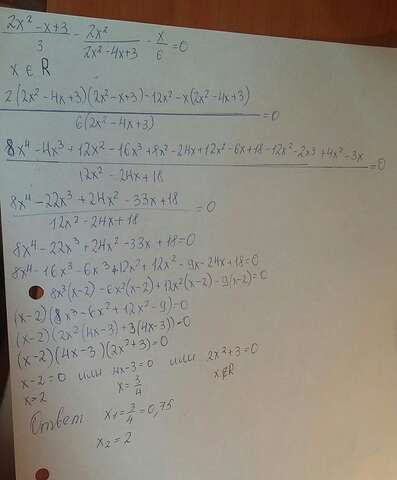 (2x² - x + 3)/3 - 2x²/(2x² - 4x + 3) - x/6 = 0
x ∈ R
(2(2x² - 4x + 3)(2x² - x + 3) - 12x² - x(2x² - 4x + 3))/(6(2x² - 4x + 3)) = 0
(8x⁴ - 4x³ + 12x² - 16x³ + 8x² - 24x + 12x² - 6x + 18 - 12x² - 2x³ + 4x² - 3x)/(12x² - 24x + 18) = 0
(8x⁴ - 22x³ + 24x² - 33x + 18)/(12x² - 24x + 18) = 0
8x⁴ - 22x³ + 24x² - 33x + 18 = 0
8x⁴ - 16x³ - 6x³ + 12x² + 12x² - 9x - 24x + 18 = 0
8x³(x-2) - 6x²(x-2) + 12x²(x-2) - 9(x-2) = 0
(x-2)(8x³ - 6x² + 12x² - 9) = 0
(x-2)(2x²(4x-3) + 3(4x-3)) = 0
(x-2)(4x-3)(2x²+3) = 0
x-2=0 или 4x-3=0 или 2x²+3=0
x=2 x=3/4 x∉R
Ответ x₁=3/4=0,75
x₂=2